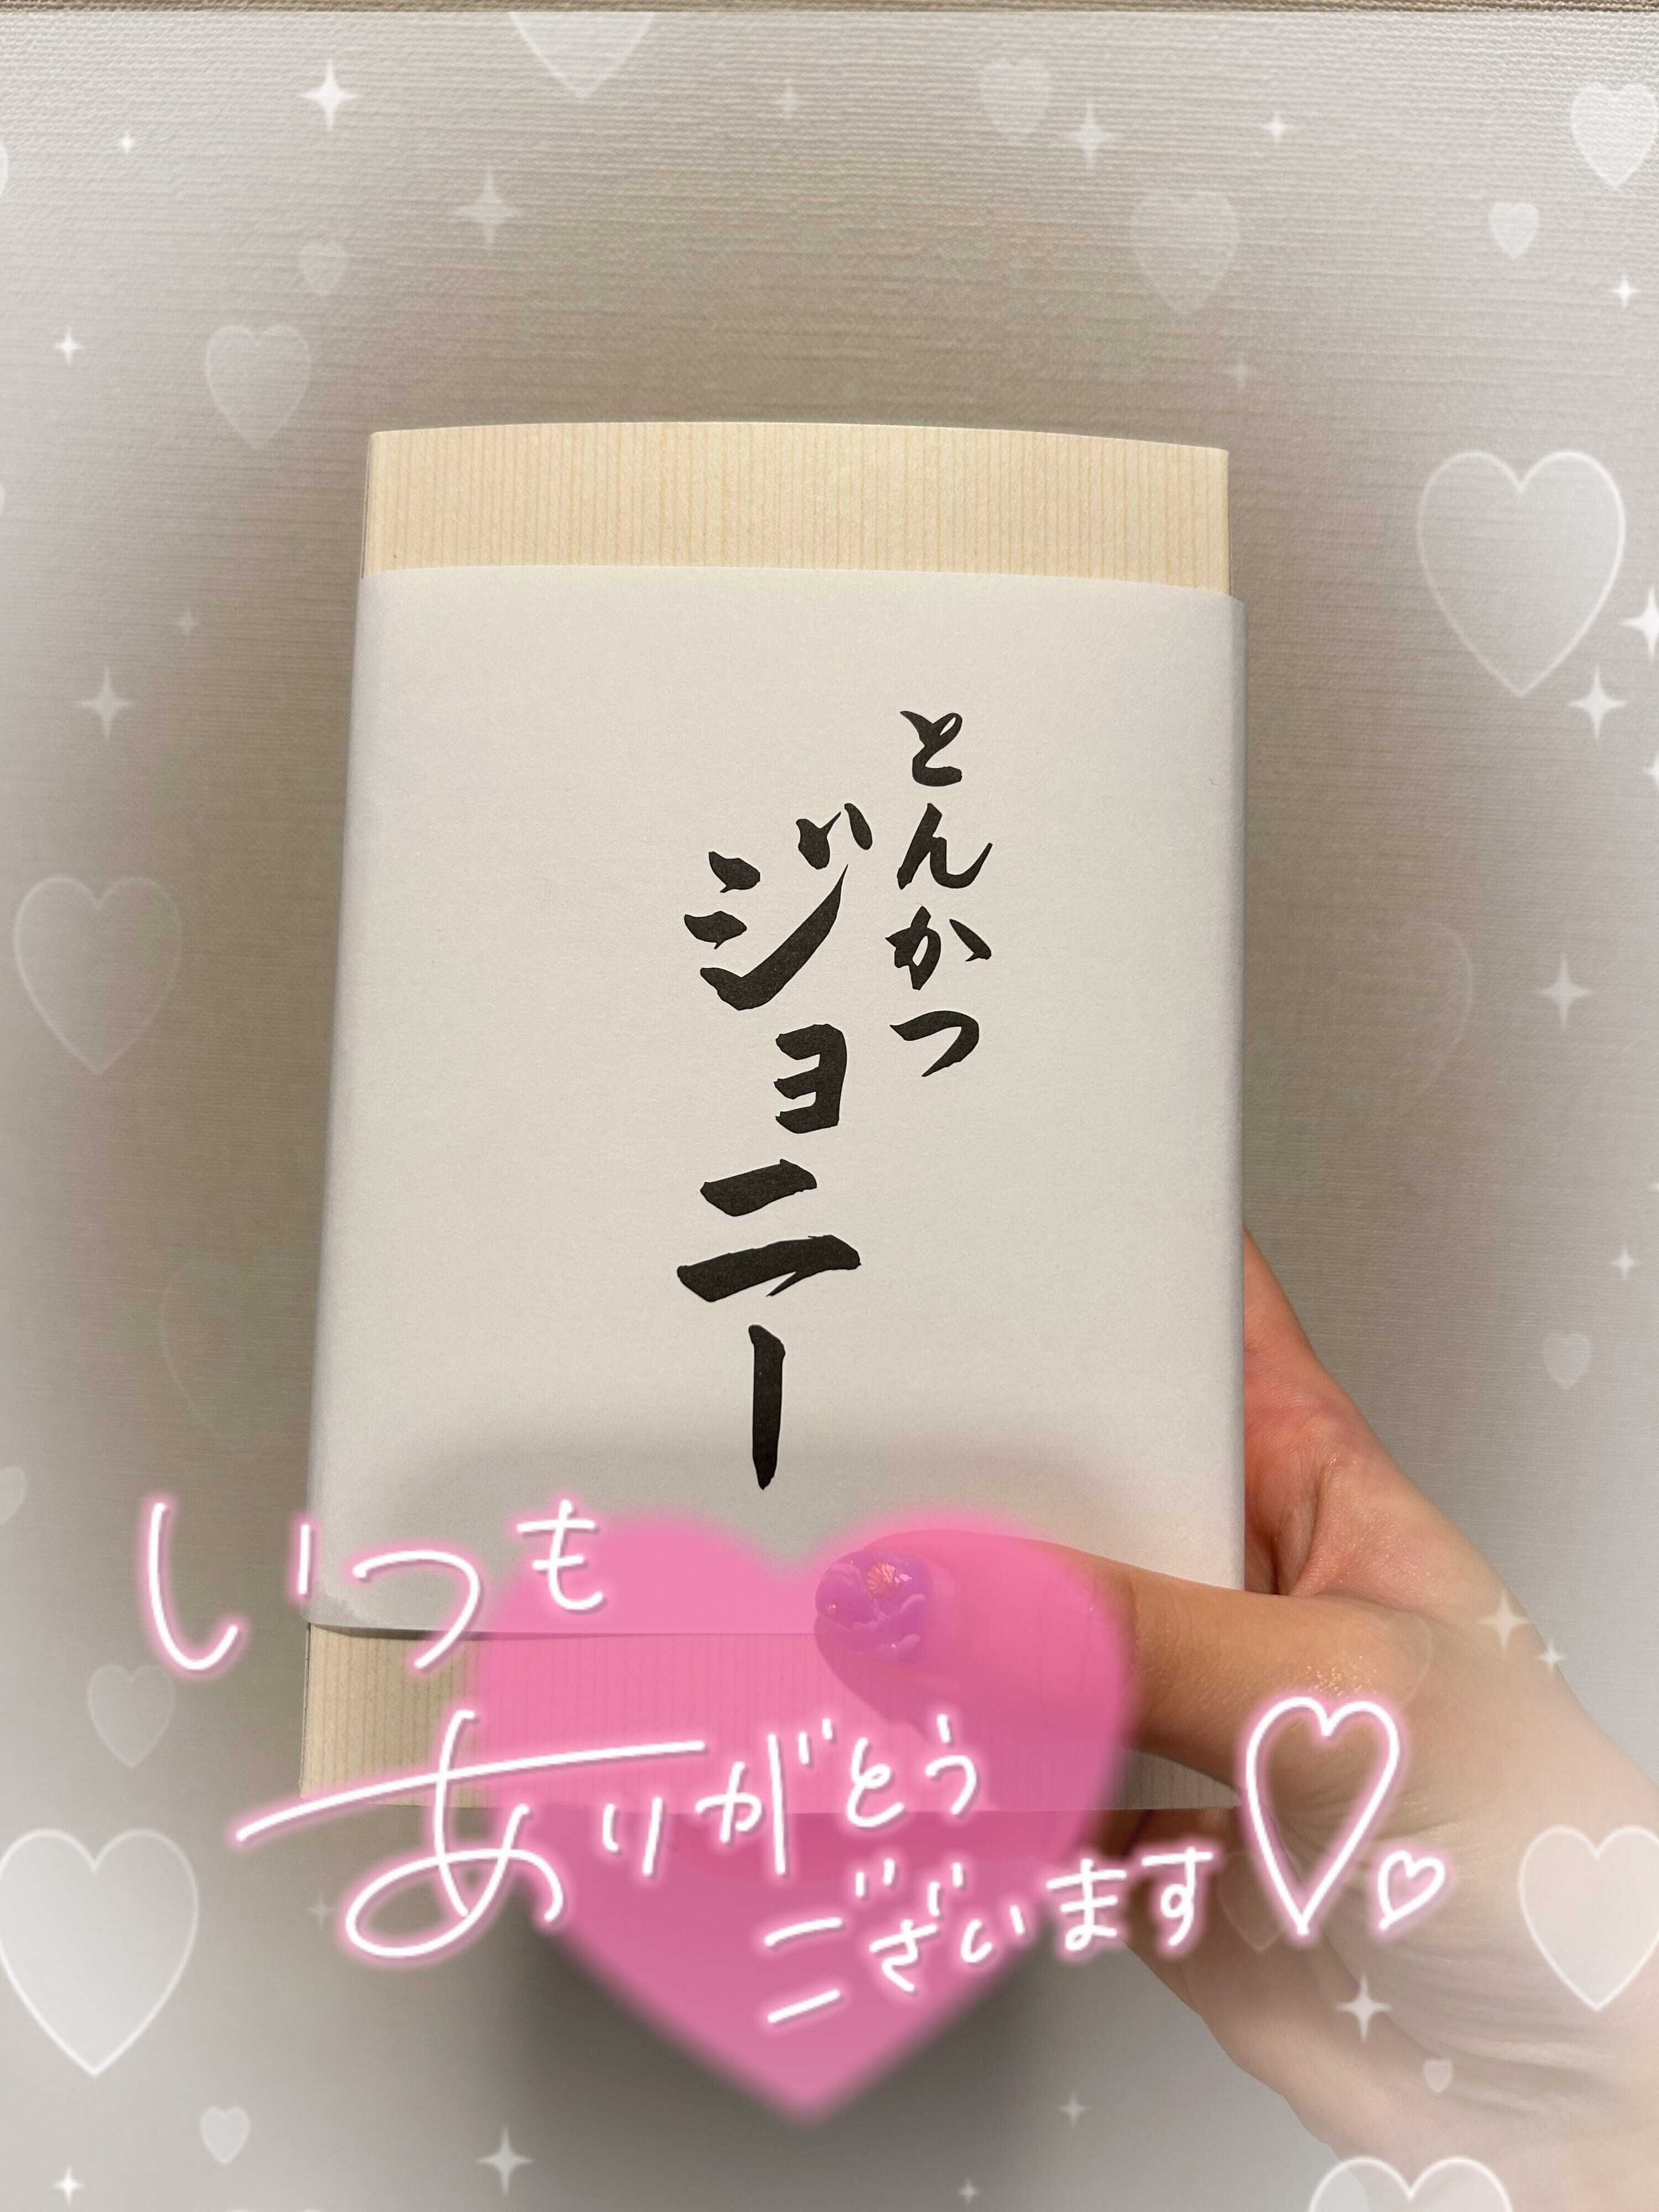 とんかつ
ジョニー
いつも
ありがとう
ございます♡♡